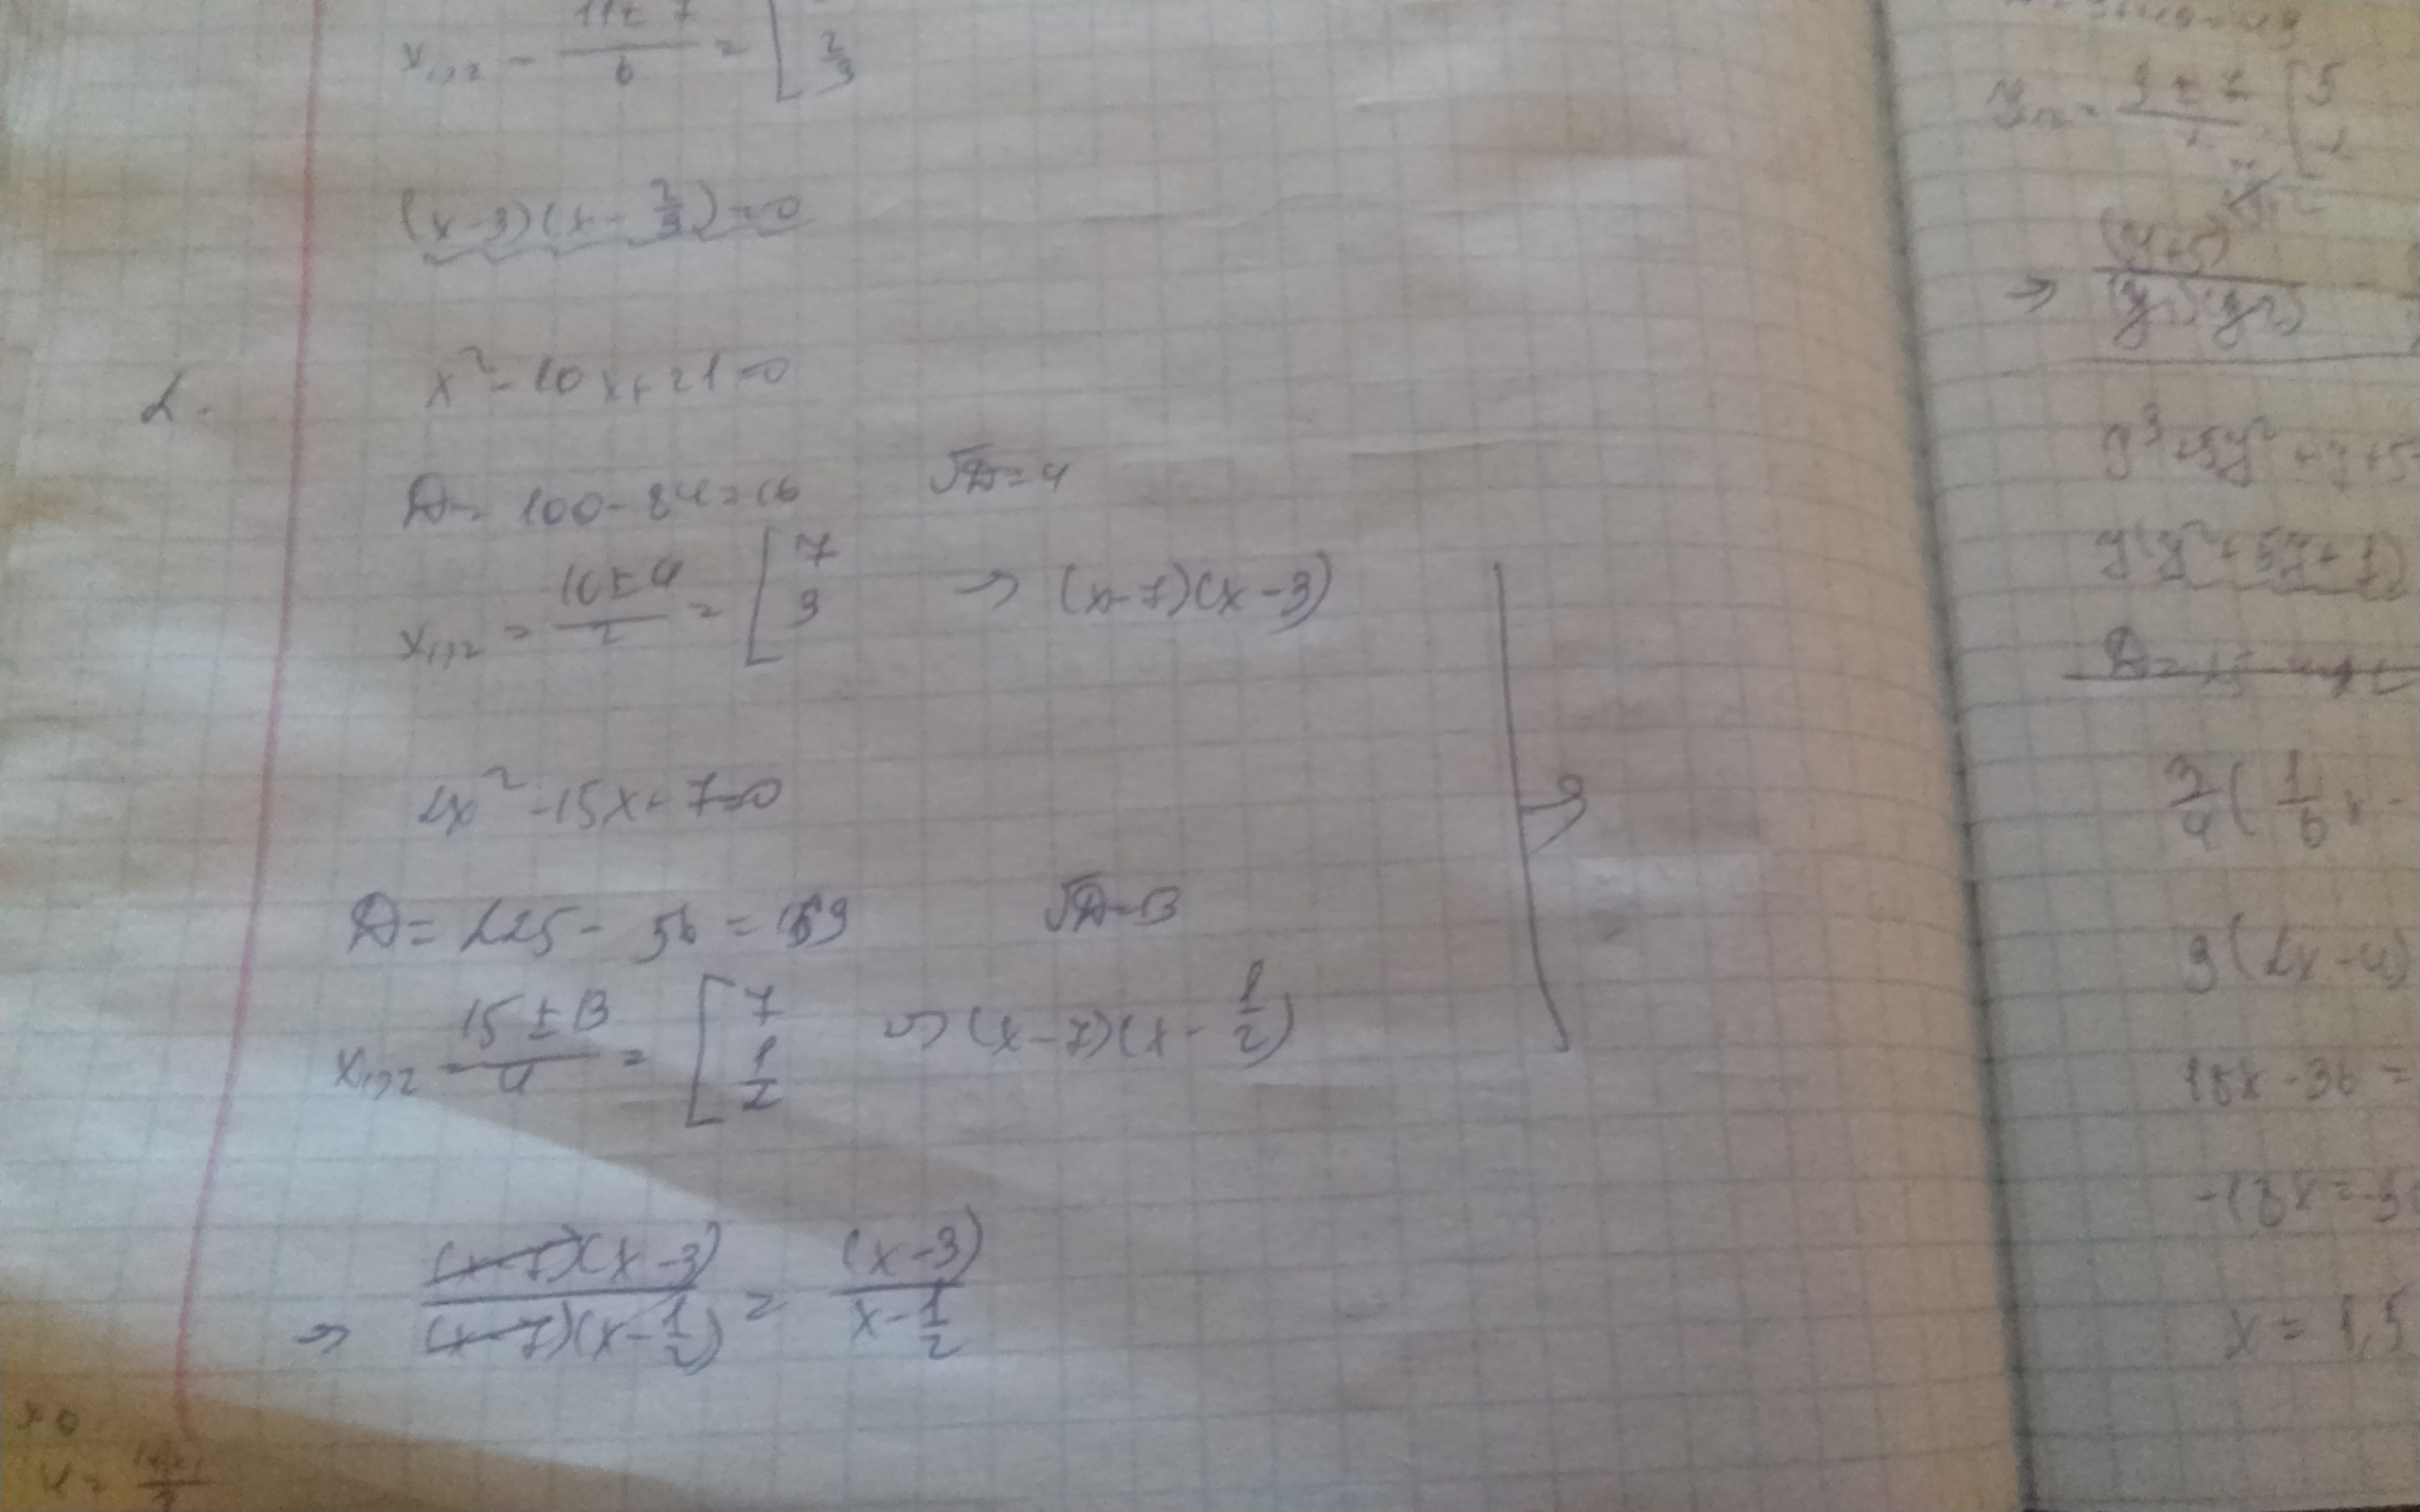 x₁,₂ = (11 ± 7)/6 = [ 2/3
(x-3)(x - 2/3) = 0
2. x² - 10x + 21 = 0
D = 100 - 84 = 16 √D = 4
x₁,₂ = (10 ± 4)/2 = [ 7 3 ⇒ (x-7)(x-3)
2x² - 15x + 7 = 0
D = 225 - 56 = 169 √D = 13
x₁,₂ = (15 ± 13)/4 = [ 7 1/2 ⇒ (x-7)(x - 1/2)
⇒ (x-7)(x-3)/(x-7)(x - 1/2) = (x-3)/(x - 1/2)
[ 5
⇒ (y+5)
y³ + 5y² + y + 5
y(y² + 5y + 1)
3/4 ( 1/6 x -
9(2x - 4)
18x - 36 =
-18x = -3
x = 1,5